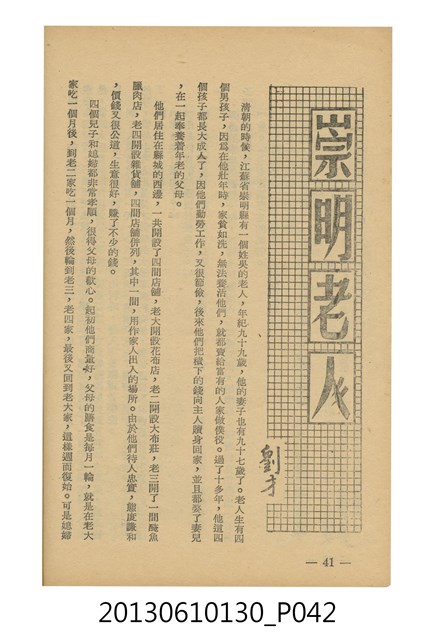 崇明老人
劉才
清朝的時候，江蘇省崇明縣有一個姓吳的老人，年紀九十九歲，他的妻子也有九十七歲了。老人生有四
個男孩子，因爲在他壯年時，家貧如洗，無法養活他們，就都賣給富有的人家做僕役。過了十多年，他這四
個孩子都長大成人了，因他們勤勞工作，又很節儉，後來他們把積下的錢向主人贖身回家，並且都娶了妻兒
，在一起奉養着年老的父母。
他們居住在縣城的西邊，一共開設了四間店舖，老大開設花布店，老二開設大布莊，老三開了一間醃魚
臘肉店，老四開設雜貨舖，四間店舖併列，其中一間，用作家人出入的場所。由於他們待人忠實，態度謙和
，價錢又很公道，生意很好，賺了不少的錢。
四個兒子和媳婦都非常孝順，很得父母的歡心。起初他們商量好，父母的膳食是每月一輪，就是在老大
家吃一個月後，到老二家吃一個月，然後輪到老三，老四家，最後又回到老大家，這樣週而復始。可是媳婦
— 41 —
20130610130_P042